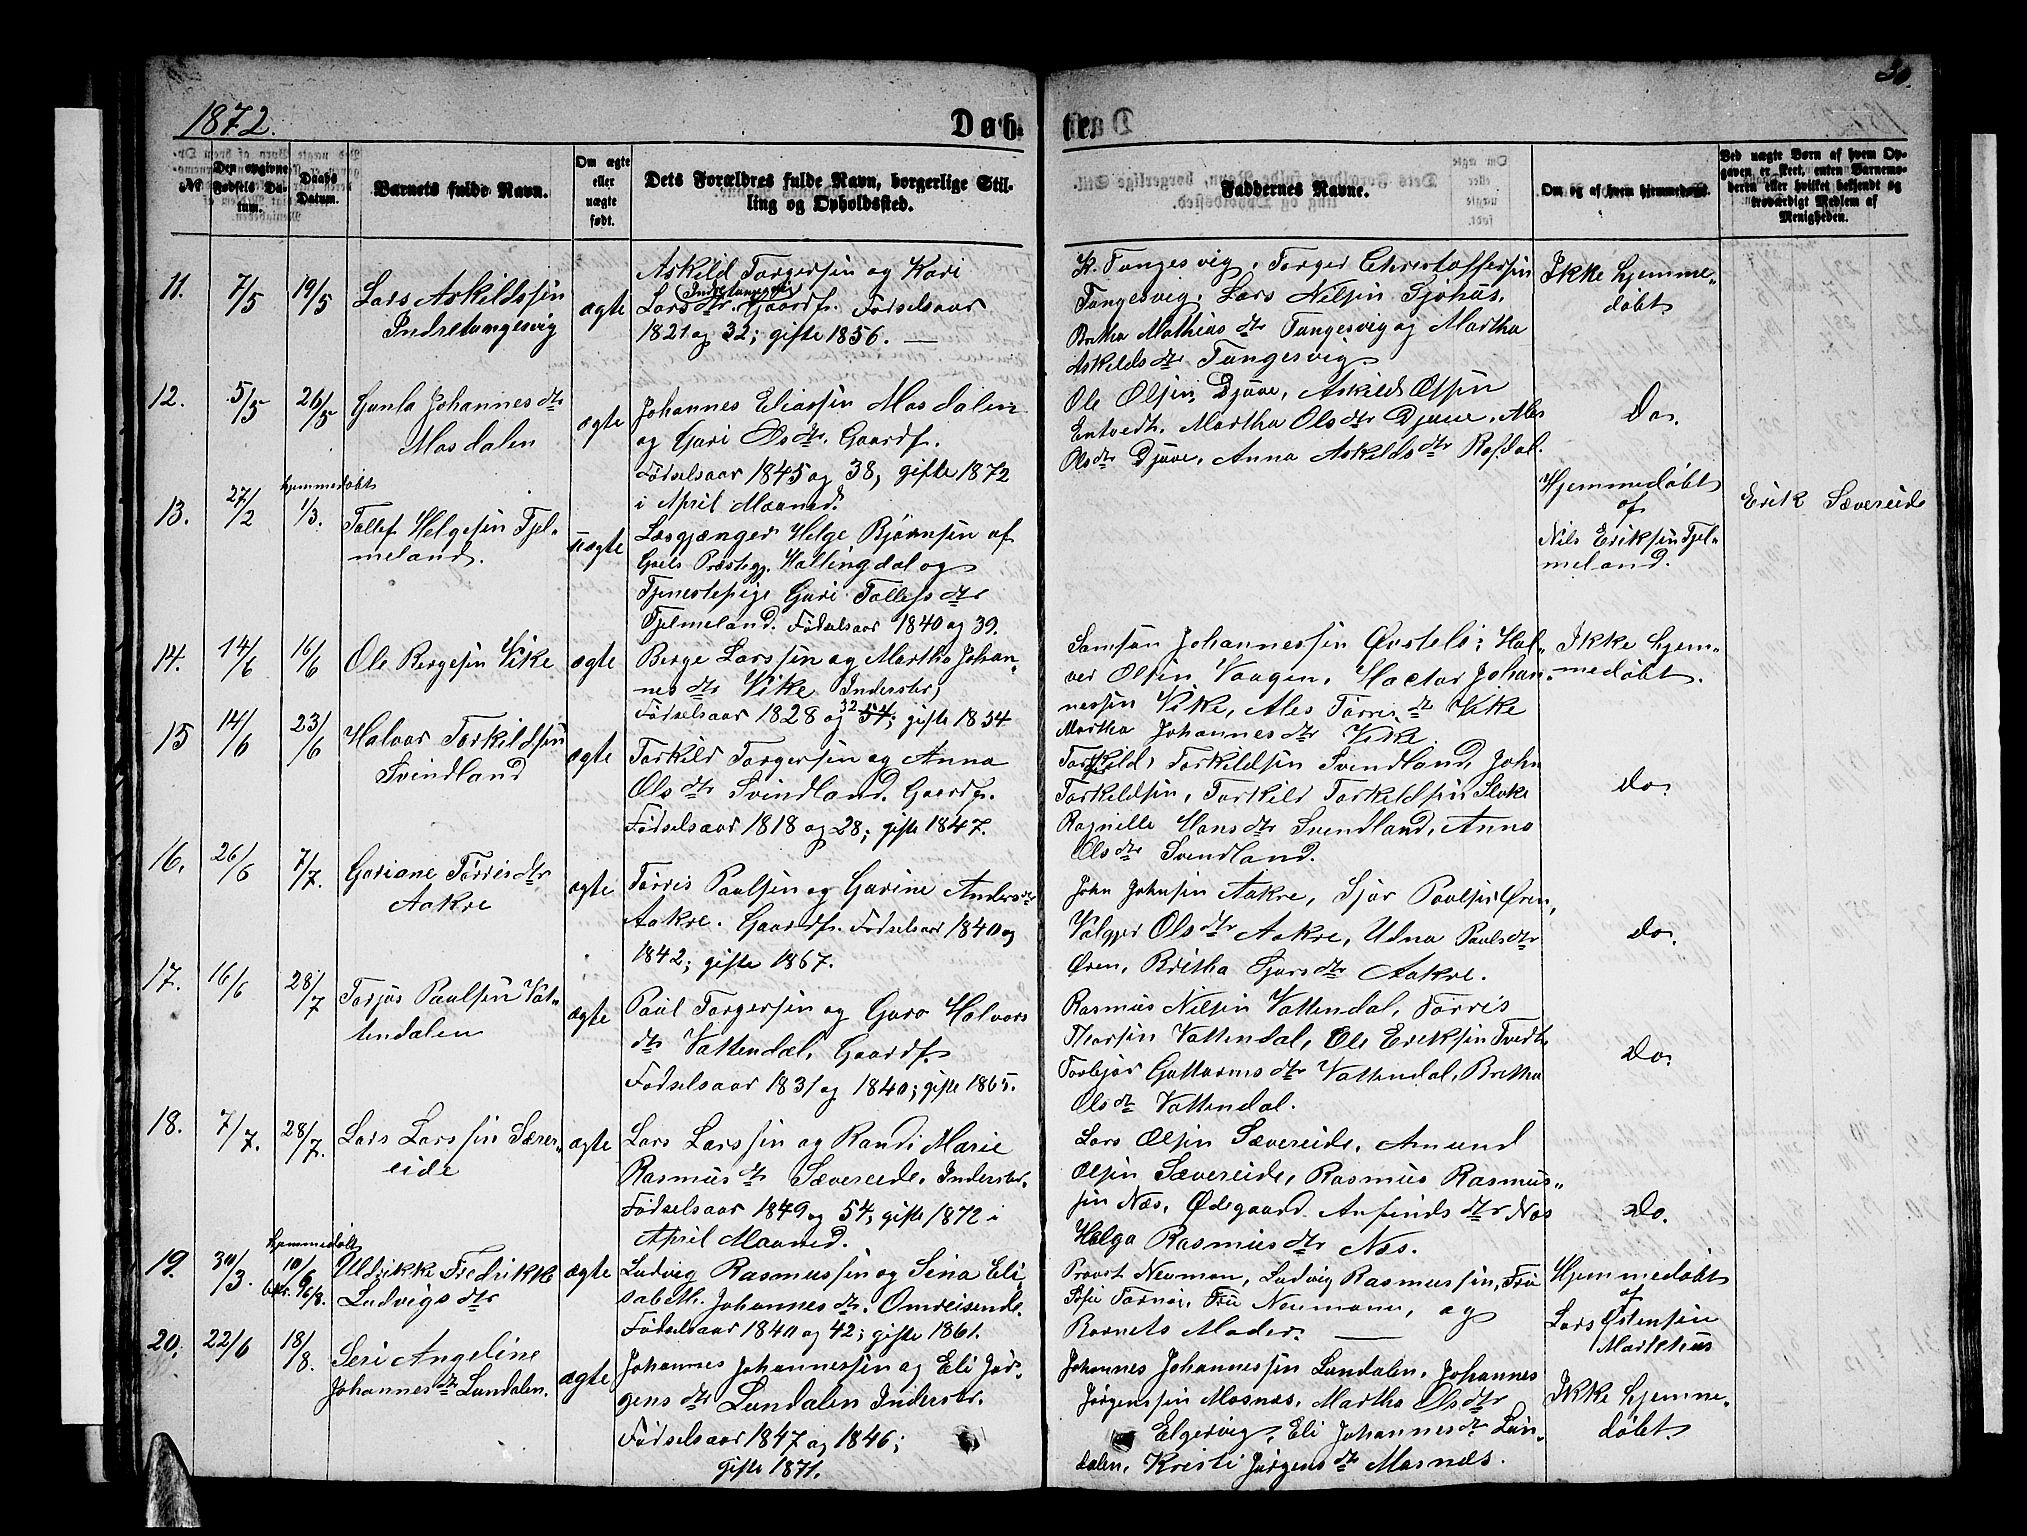 1872.
Døb-
te.
30.
№
Den opgivne Fødsels Da-
tum.
Daabs
Datum.
Barnets fulde Navn.
Om ægte
eller
uægte
født.
Dets Forældres fulde Navn, borgerlige Stil-
ling og Opholdssted.
Faddernes Navne.
Om og af hvem hjemmedøbt.
Ved uægte Børn af hvem Op-
gaven er skeet, enten Barnemo-
deren eller hvilket bekjendt og
troværdigt Medlem af
Menigheden.
11.
7/5
19/5
Lars Askildssøn
Indretungesvig
ægte
Askild Torgersøn og Kari
Indretungesvig
Larsdtr. Gaardf. Fødselsaar
1821 og 32; gifte 1856. —
K. Tungesvig, Torger Christoffersøn
Tungesvig, Lars Nilsøn Sjøhus,
Britha Mathiasdtr Tungesvig og Martha
Askildsdtr Tungesvig
Ikke hjemme-
døbt
12.
5/5
26/5
Gunla Johannesdtr
Mosdalen
ægte
Johannes Eliassøn Mosdalen
og Guri Olsdtr. Gaardf.
Fødselsaar 1845 og 38, gifte 1872
i April Maaned.
Ole Olsøn Djuve, Askild Olsøn
Entvedt, Martha Olsdtr Djuve, Ales
Olsdtr Djuve, Anna Askildsdtr Rosdal.
Do.
13.
27/2
hjemmedøbt
1/3.
Tollef Helgesøn Fjel-
meland.
uægte
Løsgjænger Helge Bjørnsøn af
Goels Præstegj. Hallingdal og
Tjenestepige Guri Tollefsdtr
Fjelmeland. Fødselsaar 1840 og 39.
Hjemmedøbt
af
Nils Eriksøn Fjel-
meland.
Erik Sævereide
14.
14/6
16/6
Ole Bergesøn Vike
ægte
Berge Larssøn og Martha Johan-
nesdtr Vike Inderstr;
Fødselsaar 1828 og 32 54; gifte 1854
Samson Johannessøn Ørstels; Hal-
vor Olsøn Vaagen, Hactor Johan-
nessøn Vike, Ales Torrisdtr Vike
Martha Johannesdtr Vike
Ikke hjem-
medøbt.
15
14/6
23/6
Halvor Torkildsøn
Svindland
ægte
Torkild Torgersøn og Anna
Olsdtr Svindland. Gaardf.
Fødselsaar 1818 og 28; gifte 1847.
Torkild Torkildsøn Svendland, John
Torkildsøn, Torkild Torkildsøn
Ragnille Hansdtr Svendland, Anna
Olsdtr Svendland.
do.
16.
26/6
7/7.
Goriane Torrisdtr
Aakre
ægte
Torris Paulsøn og Gurine Andersdtr
Aakre. Gaardf. Fødselsaar 1840 og
1842; gifte 1867.
John Johnsøn Aakre, Sjur Paulsøn Øren,
Valgjer Olsdtr Aakre, Udna Paulsdtr
Øren, Britha Sjursdtr Aakre.
do.
17.
16/6
28/7
Torjus Paulsøn Vat-
tendalen
ægte
Paul Torgersøn og Guro Halvors
dtr Vattendal, Gaardf.
Fødselsaar 1831 og 1840; gifte 1865.
Rasmus Nilsøn Vattendal, Torris
Vattendal, Ole Eriksøn Tvedt
Torbjør Guttormsdtr Vattendal, Britha
Olsdtr Vattendal.
Do.
18.
7/7.
28/7.
Lars Larssøn Sæver-
eide
ægte
Lars Larssøn og Randi Marie
Rasmusdtr Sævereide, Inderstr.
Fødselsaar 1849 og 54; gifte 1872 i
April Maaned.
Lars Olsøn Sævereide, Amund
Olsøn Sævereide, Rasmus Rasmus-
søn Næs, Ødegaard Anfindsdtr Næs
Helga Rasmusdtr Næs.
Do.
19.
30/3.
hjemmedøbt
10/6
bekr. 16/8.
Uldrikke Fredrikke
Ludvigsdtr
ægte
Ludvig Rasmussøn og Sina Eli-
sabeth Johannesdtr. Omreisende.
Fødselsaar 1840 og 42; gifte 1861.
Provst Neuman, Ludvig Rasmussøn, Fru
Fru Neumann, og
Barnets Moder. —
Hjemmedøbt
af
Lars Østensøn
Markhus
20.
22/6
18/8.
Seri Angeline
Johannesdtr Lundalen.
ægte
Johannes Johannessøn og Eli Jør-
gensdtr Lundalen Inderstr.
Fødselsaar 1847 og 1846;
gifte 1871.
Johannes Johannessøn Lundalen, Johannes
Jørgenssøn Mosnæs, Martha Olsdtr
Elgervig, Eli Johannesdtr Lun-
dalen, Kristi Jørgensdtr Mosnæs.
Ikke hjemme-
døbt.